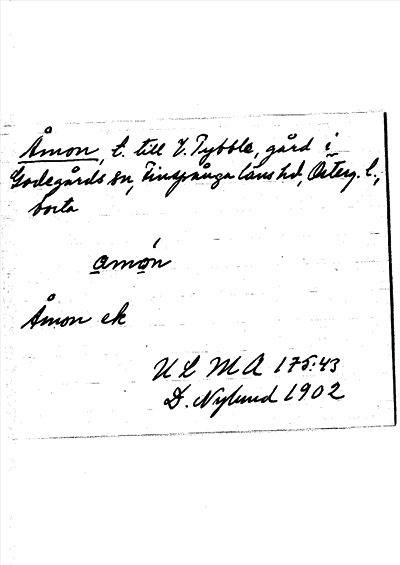 Åmon, t. till V. Tybble, gård i
Godegårds sn, Finspånga läns hd, Österg. l.,
borta
amón
Åmon ek
U L M A 175:43
D. Nylund 1902